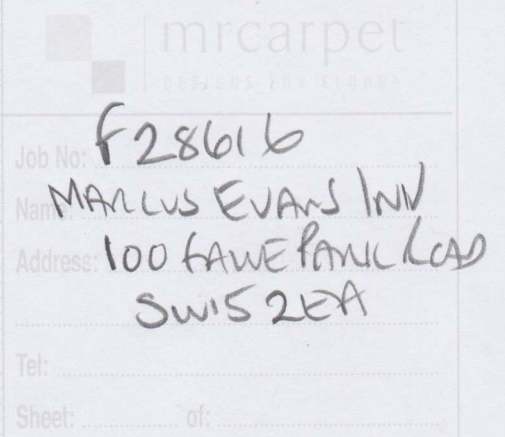 mrcarpet
DESIGNS FOR FLOORS
Job No: F28616
Name: MARCUS EVANS INN
Address: 100 FAWE PARK ROAD
SW15 2EA
Tel:
Sheet: of: